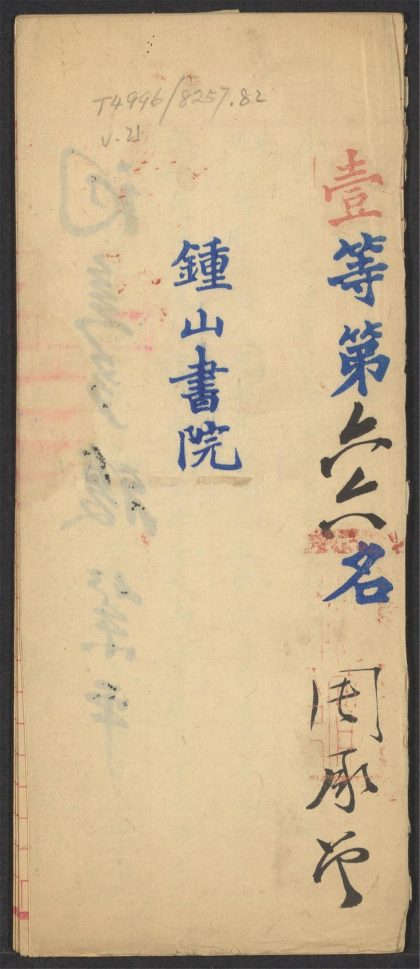 T4996/8257.82
v.21
壹等第六六名 周承
鍾山書院